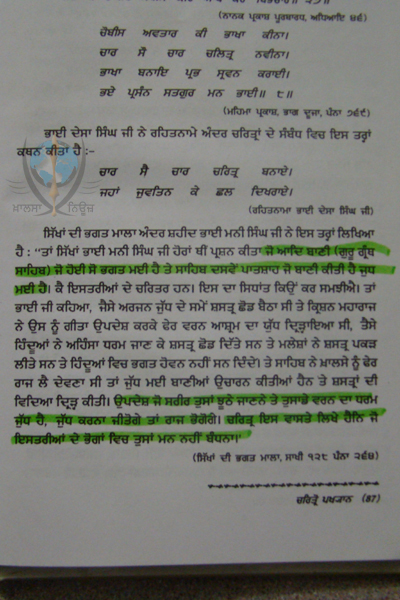 (ਨਾਨਕ ਪ੍ਰਕਾਸ਼ ਪੂਰਬਾਰਧ, ਅਧਿਆਇ ੫੬)
ਚੋਬੀਸ ਅਵਤਾਰ ਕੀ ਭਾਖਾ ਕੀਨਾ।
ਚਾਰ ਸੈ ਚਾਰ ਚਲਿਤ੍ਰ ਨਵੀਨਾ।
ਭਾਖਾ ਬਨਾਇ ਪ੍ਰਭ ਸ੍ਰਵਨ ਕਰਾਈ।
ਭਏ ਪ੍ਰਸੰਨ ਸਤਗੁਰ ਮਨ ਭਾਈ॥ ੮॥
(ਮਹਿਮਾ ਪ੍ਰਕਾਸ਼, ਭਾਗ ਦੂਜਾ, ਪੰਨਾ ੭੯੯)
ਭਾਈ ਦੇਸਾ ਸਿੰਘ ਜੀ ਨੇ ਰਹਿਤਨਾਮੇ ਅੰਦਰ ਚਰਿਤ੍ਰਾਂ ਦੇ ਸੰਬੰਧ ਵਿਚ ਇਸ ਤਰ੍ਹਾਂ
ਕਥਨ ਕੀਤਾ ਹੈ :-
ਚਾਰ ਸੈ ਚਾਰ ਚਰਿਤ੍ਰ ਬਨਾਏ।
ਜਹਾਂ ਜੁਵਤਿਨ ਕੇ ਛਲ ਦਿਖਰਾਏ।
ਖ਼ਾਲਸਾ ਨਿਊਜ਼
(ਰਹਿਤਨਾਮਾ ਭਾਈ ਦੇਸਾ ਸਿੰਘ ਜੀ)
ਸਿੱਖਾਂ ਦੀ ਭਗਤ ਮਾਲਾ ਅੰਦਰ ਸ਼ਹੀਦ ਭਾਈ ਮਨੀ ਸਿੰਘ ਜੀ ਨੇ ਇਸ ਤਰ੍ਹਾਂ ਲਿਖਿਆ
ਹੈ : "ਤਾਂ ਸਿੱਖਾਂ ਭਾਈ ਮਨੀ ਸਿੰਘ ਜੀ ਹੋਰਾਂ ਥੀਂ ਪ੍ਰਸ਼ਨ ਕੀਤਾ ਜੋ ਆਦਿ ਬਾਣੀ (ਗੁਰੂ ਗ੍ਰੰਥ
ਸਾਹਿਬ) ਜੋ ਹੋਈ ਸੋ ਭਗਤ ਮਈ ਹੈ ਤੇ ਸਾਹਿਬ ਦਸਵੇਂ ਪਾਤਸ਼ਾਹ ਜੋ ਬਾਣੀ ਕੀਤੀ ਹੈ ਜੁਧ
ਮਈ ਹੈ। ਕੈ ਇਸਤਰੀਆਂ ਦੇ ਚਰਿਤਰ ਹਨ। ਇਸ ਦਾ ਸਿਧਾਂਤ ਕਿਉਂ ਕਰ ਸਮਝੀਐ। ਤਾਂ
ਭਾਈ ਜੀ ਕਹਿਆ, ਜੈਸੇ ਅਰਜਨ ਜੁੱਧ ਦੇ ਸਮੇਂ ਸ਼ਸਤ੍ਰ ਛੋਡ ਬੈਠਾ ਸੀ ਤੇ ਕ੍ਰਿਸ਼ਨ ਮਹਾਰਾਜ
ਨੇ ਉਸ ਨੂੰ ਗੀਤਾ ਉਪਦੇਸ਼ ਕਰਕੇ ਫੇਰ ਵਰਨ ਆਸ਼੍ਰਮ ਦਾ ਯੁੱਧ ਦ੍ਰਿੜਾਇਆ ਸੀ, ਤੈਸੇ
ਹਿੰਦੂਆਂ ਨੇ ਅਹਿੰਸਾ ਧਰਮ ਜਾਣ ਕੇ ਸ਼ਸਤ੍ਰ ਛੋਡ ਦਿੱਤੇ ਸਨ ਤੇ ਮਲੇਸ਼ਾਂ ਨੇ ਸ਼ਸਤ੍ਰ ਪਕੜ
ਲੀਤੇ ਸਨ ਤੇ ਹਿੰਦੂਆਂ ਵਿਚ ਭਗਤ ਹੋਵਨ ਨਹੀਂ ਸਨ ਦਿੰਦੇ) ਤੇ ਸਾਹਿਬ ਨੇ ਖ਼ਾਲਸੇ ਨੂੰ ਫੇਰ
ਰਾਜ ਲੈ ਦੇਵਣਾ ਸੀ ਤਾਂ ਜੁੱਧ ਮਈ ਬਾਣੀਆਂ ਉਚਾਰਨ ਕੀਤੀਆਂ ਹੈਨ ਤੇ ਸ਼ਸਤ੍ਰਾਂ ਦੀ
ਵਿਦਿਆ ਦ੍ਰਿੜ ਕੀਤੀ। ਉਪਦੇਸ਼ ਜੋ ਸਰੀਰ ਤੁਸਾਂ ਝੂਠੇ ਜਾਣਨੇ ਤੇ ਤੁਸਾਡੇ ਵਰਨ ਦਾ ਧਰਮ
ਜੁੱਧ ਹੈ, ਜੁੱਧ ਕਰਨਾ ਜੀਤੋਗੇ ਤਾਂ ਰਾਜ ਭੋਗੋਗੇ। ਚਰਿਤ੍ਰ ਇਸ ਵਾਸਤੇ ਲਿਖੇ ਹੈਨਿ ਜੋ
ਇਸਤਰੀਆਂ ਦੇ ਭੋਗਾਂ ਵਿਚ ਤੁਸਾਂ ਮਨ ਨਹੀਂ ਬੰਧਨਾ।'
(ਸਿੱਖਾਂ ਦੀ ਭਗਤ ਮਾਲਾ, ਸਾਖੀ ੧੨੮ ਪੰਨਾ ੨੬੭)
ਚਰਿਤ੍ਰੋ ਪਖ੍ਯਾਨ (87)